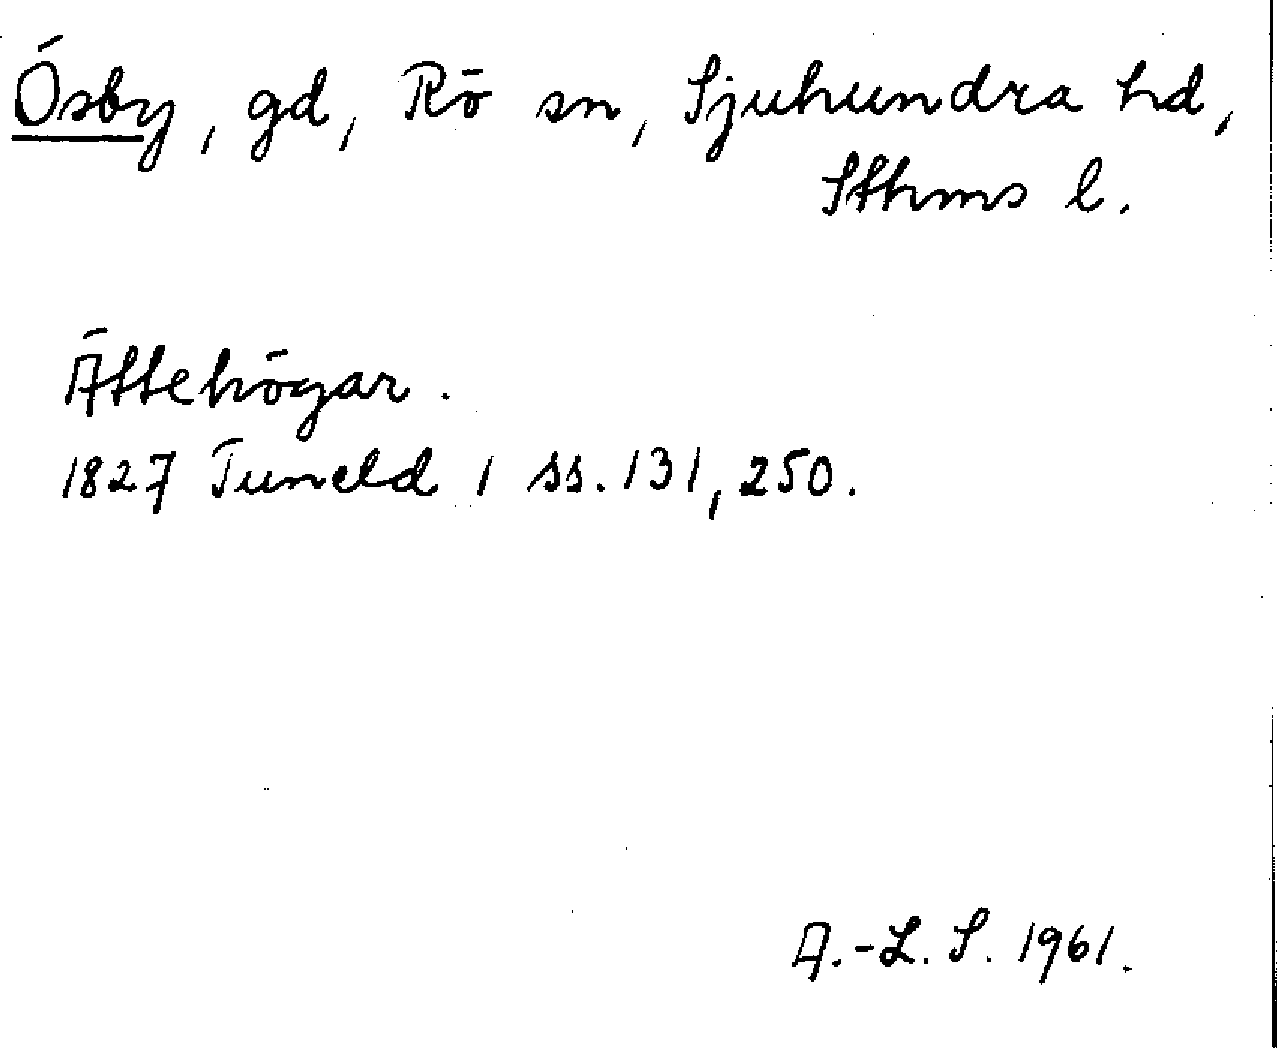 Ösby, gd, Rö sn, Sjuhundra hd,
Sthms l.
Ättehögar.
1827 Tuneld 1 ss. 131, 250.
A.-L. S. 1961.